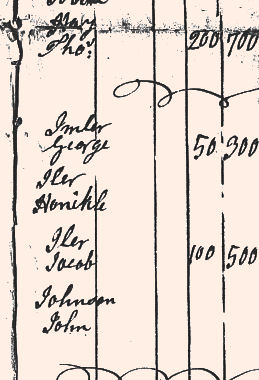 Mary
Tho.s 200 700
Imler
George 50 300
Iler
Honikle
Iler
Jacob 100 500
Johnson
John